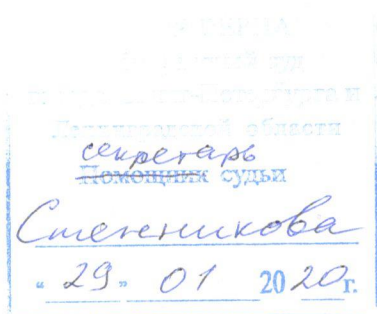 Ленинградской области
секретарь
Помощник судьи
Стенникова
"29" 01 2020г.